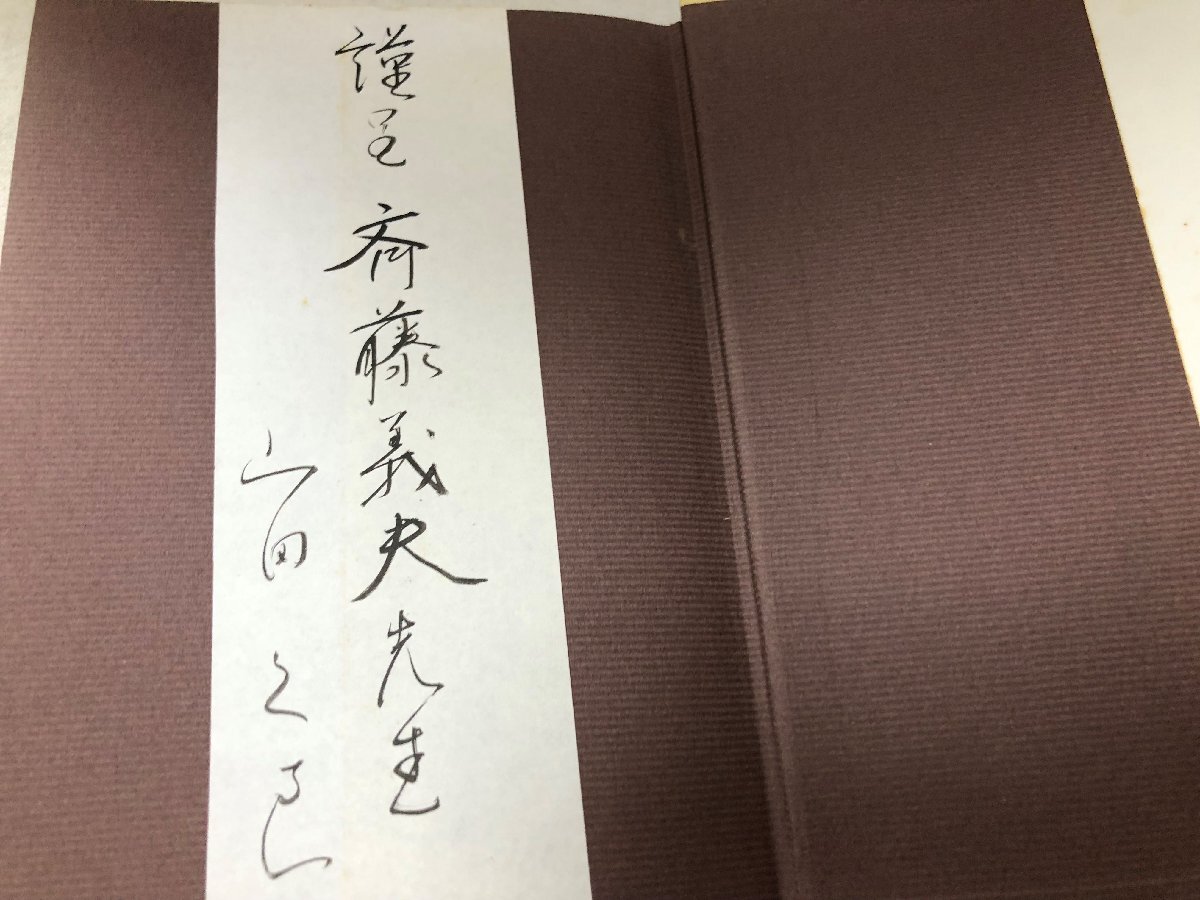 謹呈 斉藤義夫先生
山田